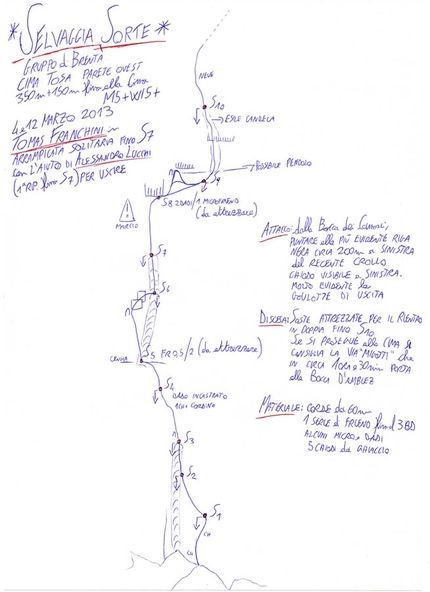 * SELVAGGIA SORTE *
GRUPPO di BRENTA
CIMA TOSA PARETE OVEST
350m+150m fino alla Cima
M5+WI5+
4 e 12 MARZO 2013
TOMAS FRANCHINI
ARRAMPICATA SOLITARIA FINO S7
con L'AIUTO DI ALESSANDRO LUCCHI
(1ª RP. fino S7) PER USCIRE
NEVE
S10
ESILE CANDELA
POSSIBILE PENDOLO
S9
S8 2DADI/1 MICROFRIEND
(da attrezzare)
MARCIO
S7
S6
S5 FR 0,5/2 (da attrezzare)
CENGIA
S4
DADO INCASTRATO
1CH + CORDINO
S3
S2
S1
CH
CH
ATTACCO: dalla Bocca dei Camosci,
PUNTARE alla PIÙ EVIDENTE RIGA
NERA CIRCA 200m a SINISTRA
del RECENTE CROLLO.
CHIODO VISIBILE a SINISTRA.
MOLTO EVIDENTE la
GOULOTTE DI USCITA
DISCESA: SOSTE ATTREZZATE PER IL RIENTRO
IN DOPPIA FINO S10
Se SI PROSEGUE alla CIMA SI
CONSIGLIA LA VIA "MIGOTTI" che
IN CIRCA 1ORA e 30min PORTA
alla BOCCA D'AMBIEZ
MATERIALE: CORDE da 60m
1 SERIE di FRIEND fino al 3 BD
ALCUNI MICRO e DADI
5 CHIODI da GHIACCIO